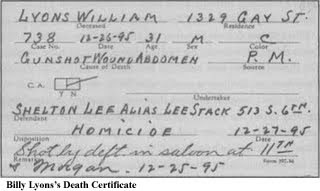 LYONS WILLIAM 1329 GAY ST.
Deceased Residence
738 12-26-95 31 M C
Case No. Date Age. Sex Color
GUNSHOT WOUND ABDOMEN P. M.
Cause of Death Source
C. A. Y N
Undertaker
SHELTON LEE ALIAS LEE STACK 513 S. 6TH.
Defendant
HOMICIDE 12-27-95
Disposition Date
Shot by deft in saloon at 11TH
Remarks
& Morgan. 12-25-95
Billy Lyons's Death Certificate